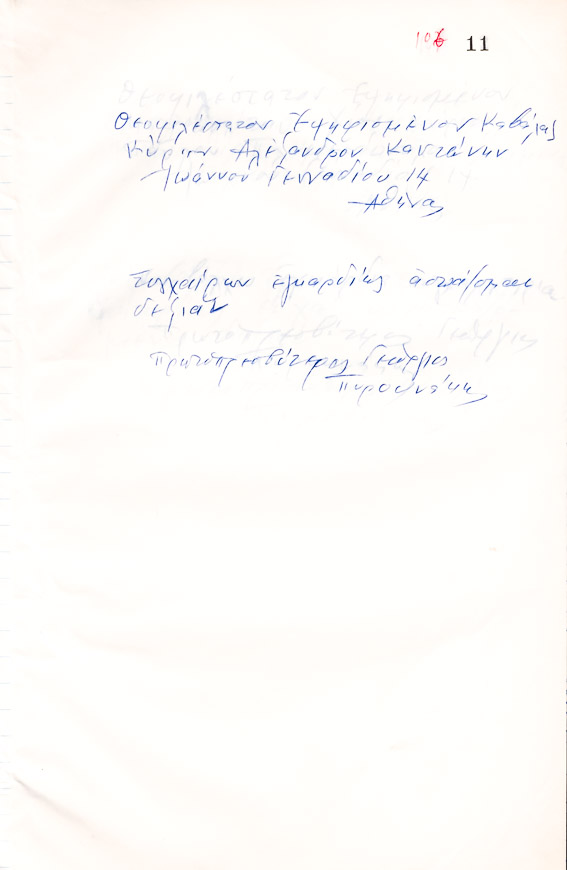 106 11
Θεοφιλέστατον Ἐψηφισμένον Καβάλας
Κύριον Ἀλέξανδρον Καντώνην
Ἰωάννου Γενναδίου 14
Ἀθήνας
Συγχαίρων ἐγκαρδίως ἀσπάζομαι
δεξιάν
Πρωτοπρεσβύτερος Γεώργιος
Πυρουνάκης